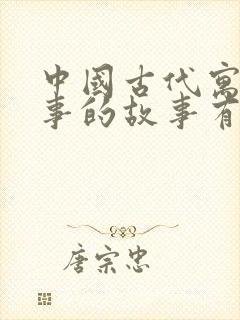 中國古代寓
事的故事有
唐宗忠